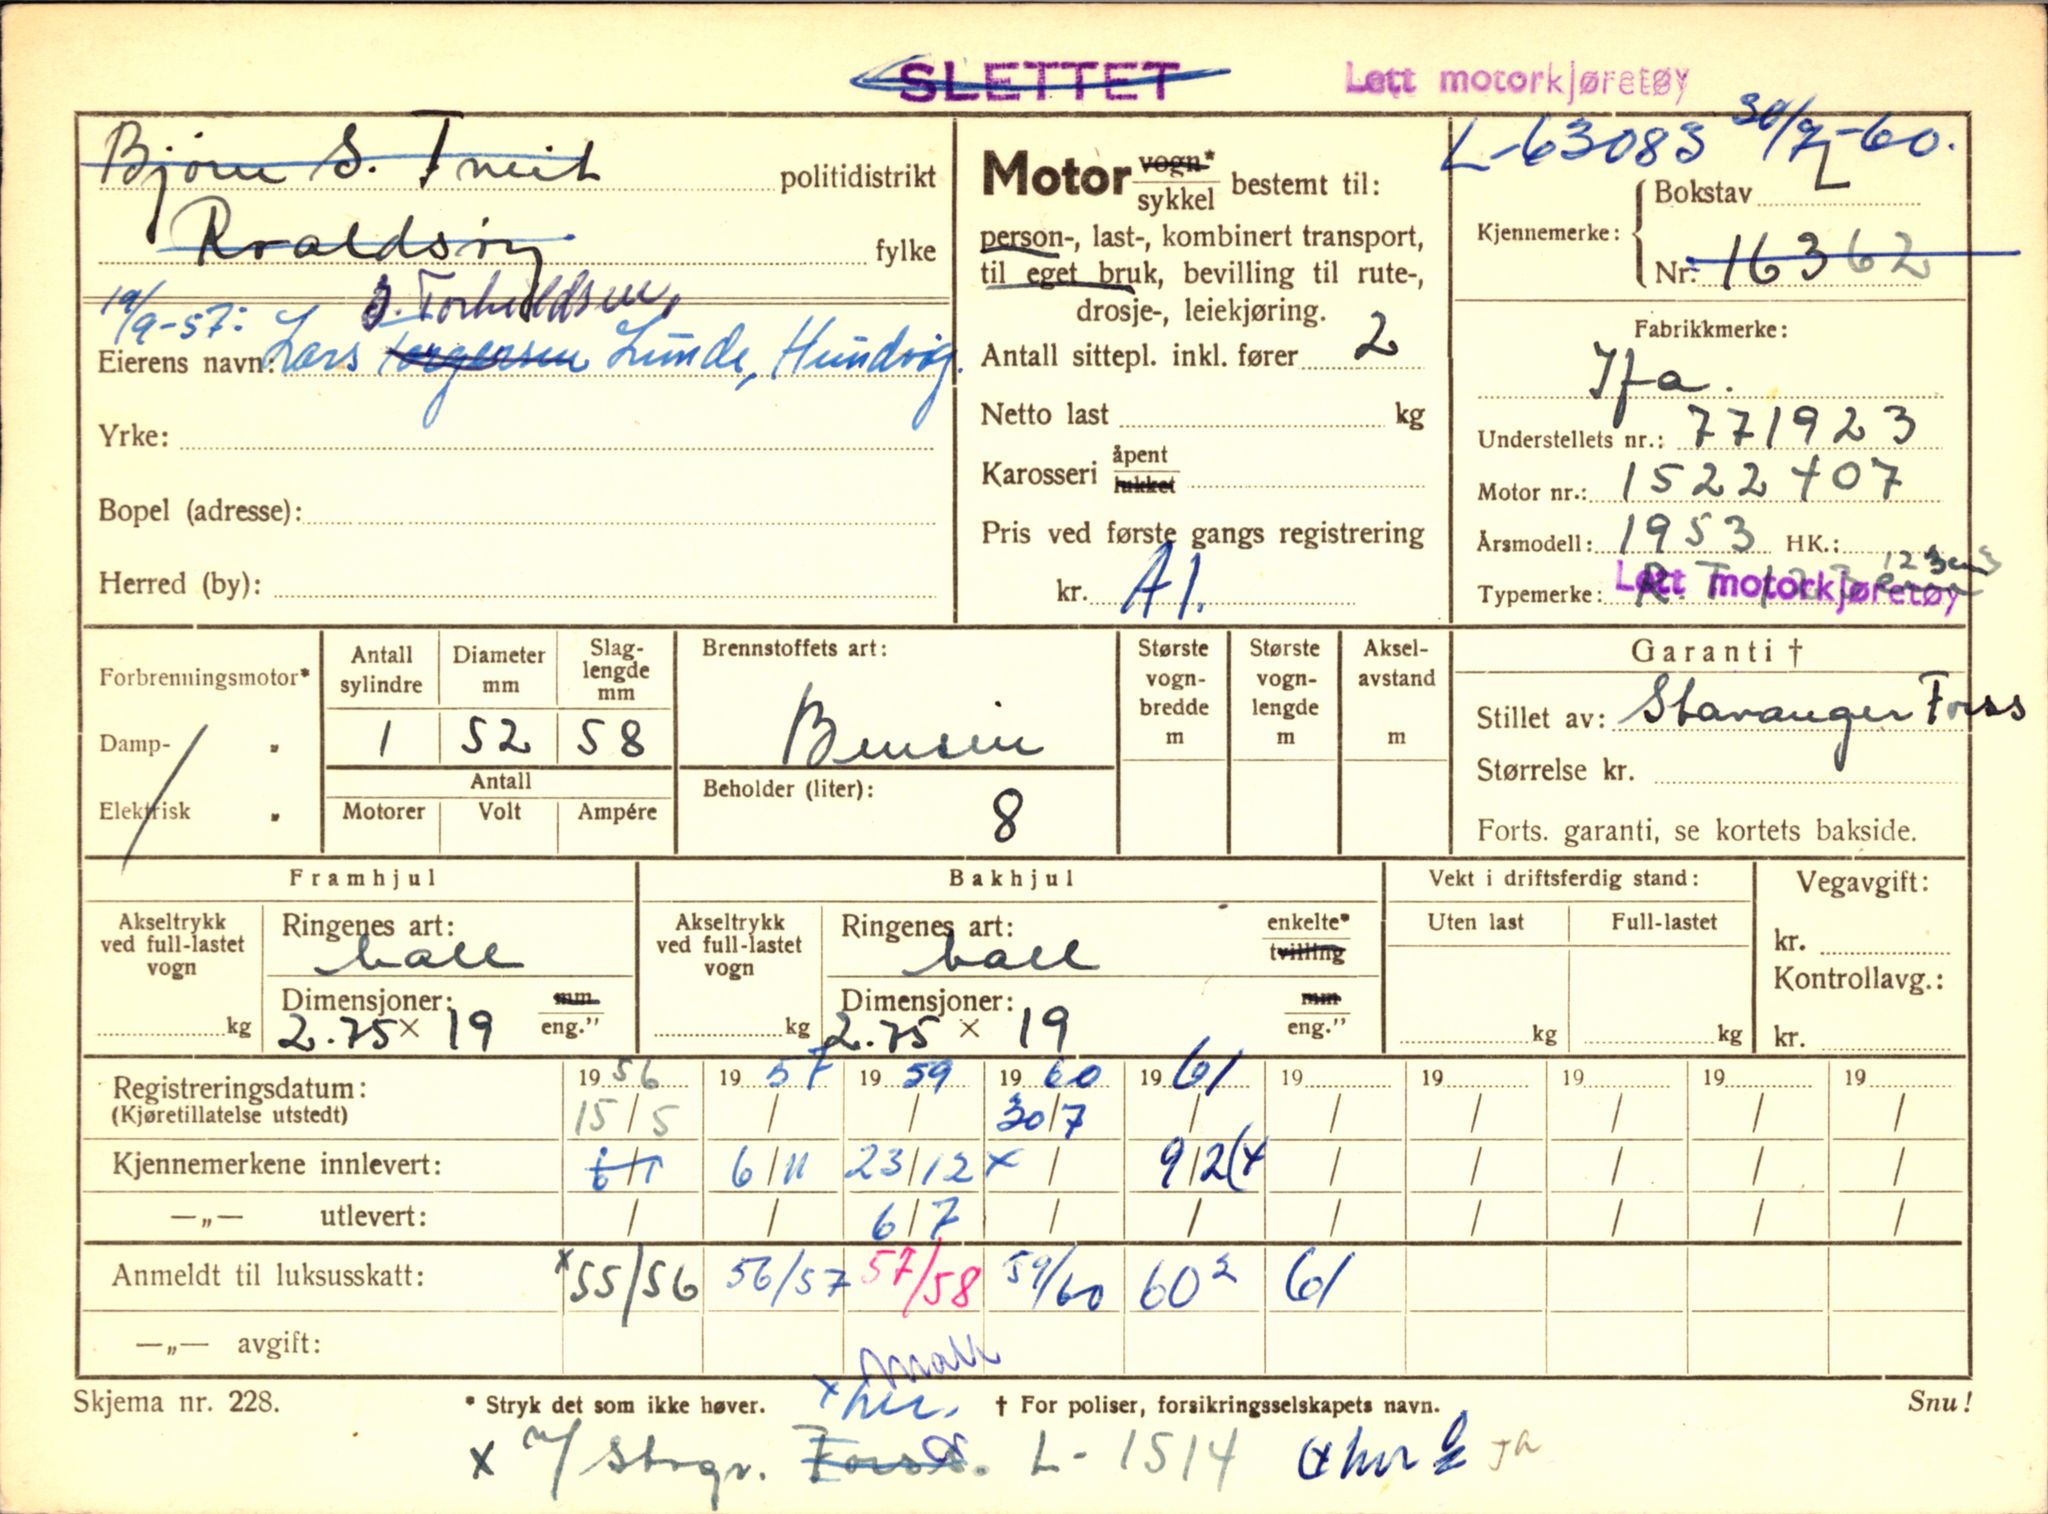 SLETTET
Lett motorkjøretøy
L-63083 30/7-60.
Bjørn S. Tveit politidistrikt
Roaldsøy fylke
S. Torkildsen,
19/9-57:
Eierens navn: Lars Torgersen Lunde, Hundvåg.
Yrke:
Bopel (adresse):
Herred (by):
Motor vogn* sykkel bestemt til:
person-, last-, kombinert transport,
til eget bruk, bevilling til rute-,
drosje-, leiekjøring.
Antall sittepl. inkl. fører 2
Netto last kg
Karosseri åpent lukket
Pris ved første gangs registrering
kr. A1.
Kjennemerke: Bokstav L
Nr. 16362
Fabrikkmerke:
Ifa.
Understellets nr.: 771923
Motor nr.: 1522407
Årsmodell: 1953 HK.:
123 cm3
Typemerke: R.T. Lett motorkjøretøy
Forbrenningsmotor*
Damp- „
Elektrisk „
Antall sylindre 1
Diameter mm 52
Slaglengde mm 58
Antall
Motorer Volt Ampére
Brennstoffets art:
Bensin
Beholder (liter):
8
Største vogn-bredde m
Største vogn-lengde m
Aksel-avstand m
Garanti †
Stillet av: Stavanger Forss
Størrelse kr.
Forts. garanti, se kortets bakside.
Framhjul
Akseltrykk ved full-lastet vogn kg
Ringenes art:
ball
Dimensjoner: mm
2.75 × 19 eng."
Bakhjul
Akseltrykk ved full-lastet vogn kg
Ringenes art: enkelte*
ball tvilling
Dimensjoner: mm
2.75 × 19 eng."
Vekt i driftsferdig stand:
Uten last Full-lastet
kg kg
Vegavgift:
kr.
Kontrollavg.:
kr.
Registreringsdatum: 19 56 19 57 19 59 19 60 19 61 19 19 19 19 19
(Kjøretillatelse utstedt) 15/5 / / 30/7 / / / / / /
Kjennemerkene innlevert: 6/1 6/11 23/12 x / 9/2 (x / / / / /
—„— utlevert: / / 6/7 / / / / / / /
Anmeldt til luksusskatt: x55/56 56/57 57/58 59/60 60² 61
—„— avgift:
Skjema nr. 228.
* Stryk det som ikke høver.
† For poliser, forsikringsselskapets navn.
Snu!
x n/ Stvgr. Forss. L-1514